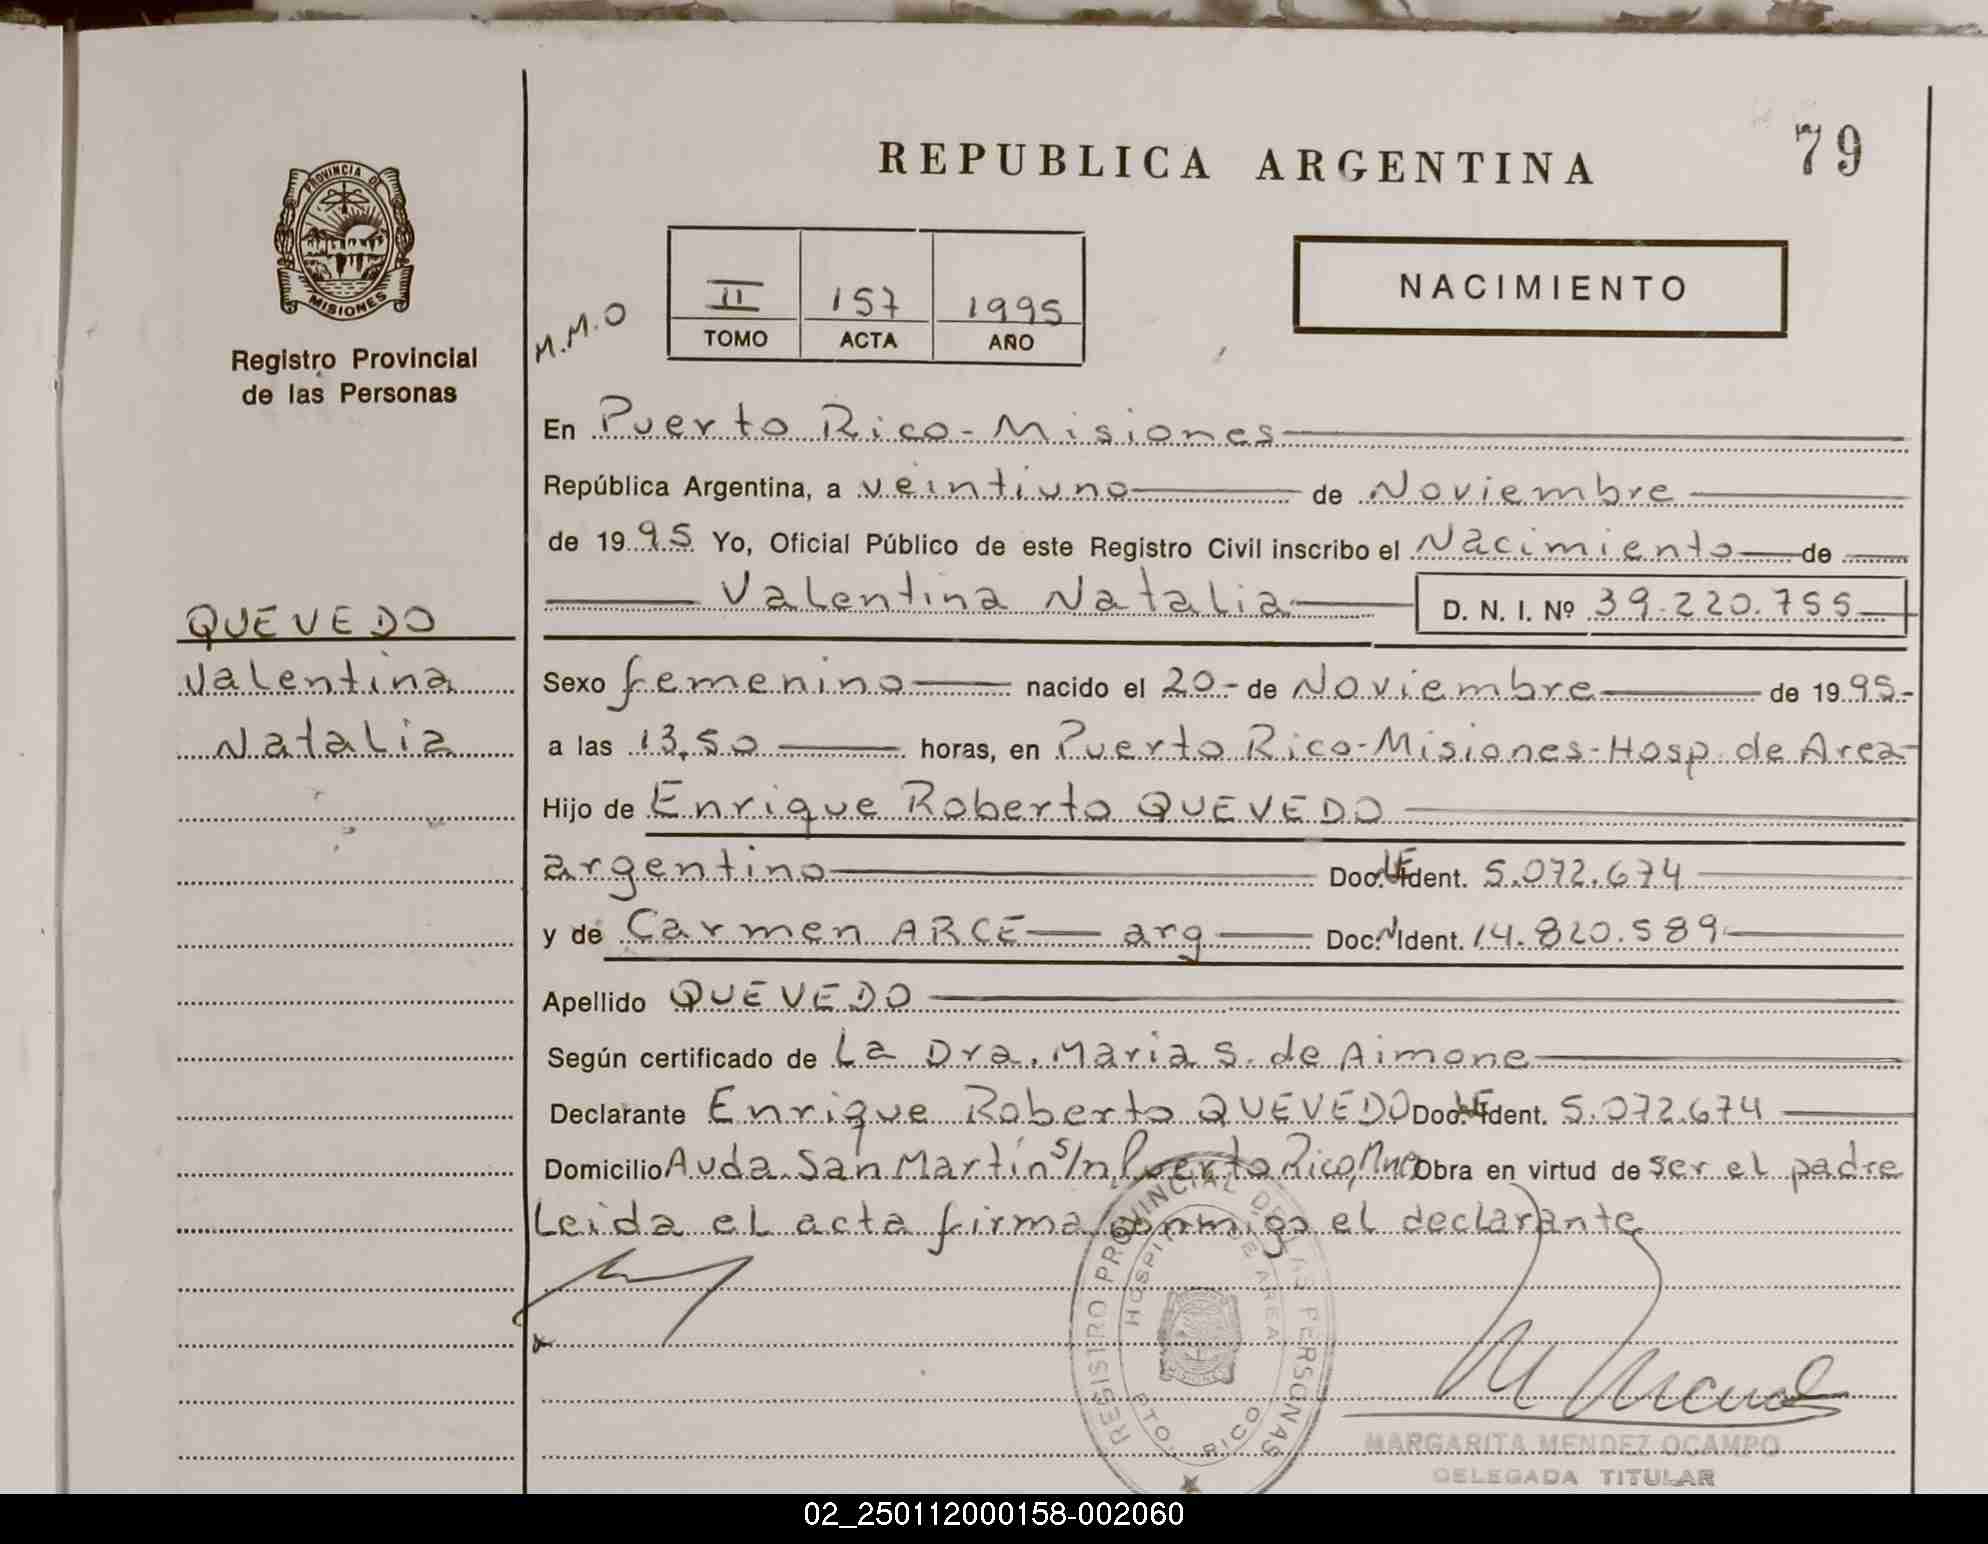 79
REPUBLICA ARGENTINA
PROVINCIA DE
MISIONES
Registro Provincial
de las Personas
M.M.O
II 157 1995
TOMO ACTA AÑO
NACIMIENTO
En Puerto Rico - Misiones
República Argentina, a veintiuno de Noviembre
de 19 95 Yo, Oficial Público de este Registro Civil inscribo el Nacimiento de
Valentina Natalia D. N. I. Nº 39.220.755
QUEVEDO
Valentina
Natalia
Sexo femenino nacido el 20- de Noviembre de 19 95-
a las 13,50 horas, en Puerto Rico-Misiones-Hosp. de Area-
Hijo de Enrique Roberto QUEVEDO
argentino Doc. LE Ident. 5.072.674
y de Carmen ARCE arg Doc. Ident. 14.820.589
Apellido QUEVEDO
Según certificado de La Dra. Maria S. de Aimone
Declarante Enrique Roberto QUEVEDO Doc. LE Ident. 5.072.674
Domicilio Avda. San Martín s/n Puerto Rico, Mnes Obra en virtud de ser el padre
Leida el acta firma conmigo el declarante
REGISTRO PROVINCIAL DE LAS PERSONAS
HOSPITAL DE AREA
PTO. RICO
MARGARITA MENDEZ OCAMPO
DELEGADA TITULAR
02_250112000158-002060